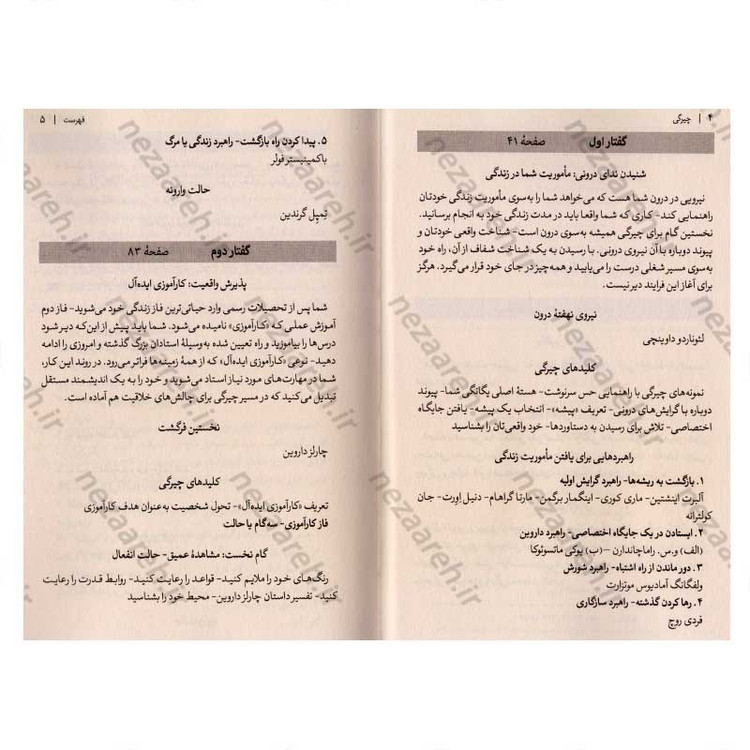 ۴ | چیرگی
گفتار اول صفحهٔ ۴۱
شنیدن ندای درونی: مأموریت شما در زندگی
نیرویی در درون شما هست که می‌خواهد شما را به‌سوی مأموریت زندگی خودتان
راهنمایی کند- کاری که شما واقعا باید در مدت زندگی خود به انجام برسانید.
نخستین گام برای چیرگی همیشه به‌سوی درون است- شناخت واقعی خودتان و
پیوند دوباره با آن نیروی درونی. با رسیدن به یک شناخت شفاف از آن، راه خود
به‌سوی مسیر شغلی درست را می‌یابید و همه‌چیز در جای خود قرار می‌گیرد. هرگز
برای آغاز این فرایند دیر نیست.
نیروی نهفتهٔ درون
لئوناردو داوینچی
کلیدهای چیرگی
نمونه‌های چیرگی با راهنمایی حس سرنوشت- هستهٔ اصلی یگانگی شما- پیوند
دوباره با گرایش‌های درونی- تعریف «پیشه»- انتخاب یک پیشه- یافتن جایگاه
اختصاصی- تلاش برای رسیدن به دستاوردها- خود واقعی‌تان را بشناسید
راهبردهایی برای یافتن مأموریت زندگی
۱. بازگشت به ریشه‌ها- راهبرد گرایش اولیه
آلبرت اینشتین- ماری کوری- اینگمار برگمن- مارتا گراهام- دنیل اورت- جان
کولترانه
۲. ایستادن در یک جایگاه اختصاصی- راهبرد داروین
(الف) و.س. راماچاندارن – (ب) یوکی ماتسوئوکا
۳. دور ماندن از راه اشتباه- راهبرد شورش
ولفگانگ آمادیوس موتزارت
۴. رها کردن گذشته- راهبرد سازگاری
فردی روچ
فهرست | ۵
۵. پیدا کردن راه بازگشت- راهبرد زندگی یا مرگ
باکمینیستر فولر
حالت وارونه
تِمپل گرندین
گفتار دوم صفحهٔ ۸۳
پذیرش واقعیت: کارآموزی ایده‌آل
شما پس از تحصیلات رسمی وارد حیاتی‌ترین فاز زندگی خود می‌شوید- فاز دوم
آموزش عملی که «کارآموزی» نامیده می‌شود. شما باید پیش از این‌که دیر شود
درس‌ها را بیاموزید و راه تعیین شده به‌وسیلهٔ استادان بزرگ گذشته و امروزی را ادامه
دهید- نوعی «کارآموزی ایده‌آل» که از همهٔ زمینه‌ها فراتر می‌رود. در روند این کار،
شما در مهارت‌های مورد نیاز استاد می‌شوید و خود را به یک اندیشمند مستقل
تبدیل می‌کنید که در مسیر چیرگی برای چالش‌های خلاقیت هم آماده است.
نخستین فرگشت
چارلز داروین
کلیدهای چیرگی
تعریف «کارآموزی ایده‌آل»- تحول شخصیت به‌عنوان هدف کارآموزی
فاز کارآموزی- سه‌گام یا حالت
گام نخست: مشاهدهٔ عمیق- حالت انفعال
رنگ‌های خود را ملایم کنید- قواعد را رعایت کنید- روابط قدرت را رعایت
کنید- تفسیر داستان چارلز داروین- محیط خود را بشناسید
nezaareh.ir